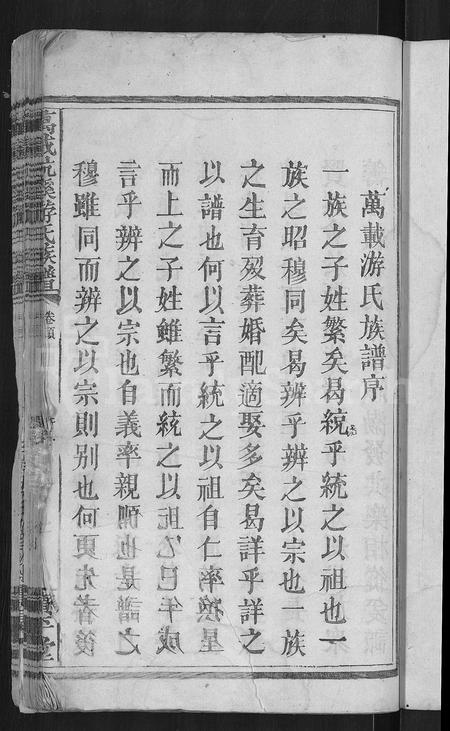 萬載游氏族譜序
一族之子姓繁矣曷統乎統之以祖也一
族之昭穆同矣曷辨乎辨之以宗也一族
之生育歿葬婚配適娶多矣曷詳乎詳之
以譜也何以言乎統之以祖自仁率
而上之子姓雖繁而統之以祖
言乎辨之以宗也自義率親順也是譜之
穆雖同而辨之以宗則別也何
游氏族譜
卷首
堂